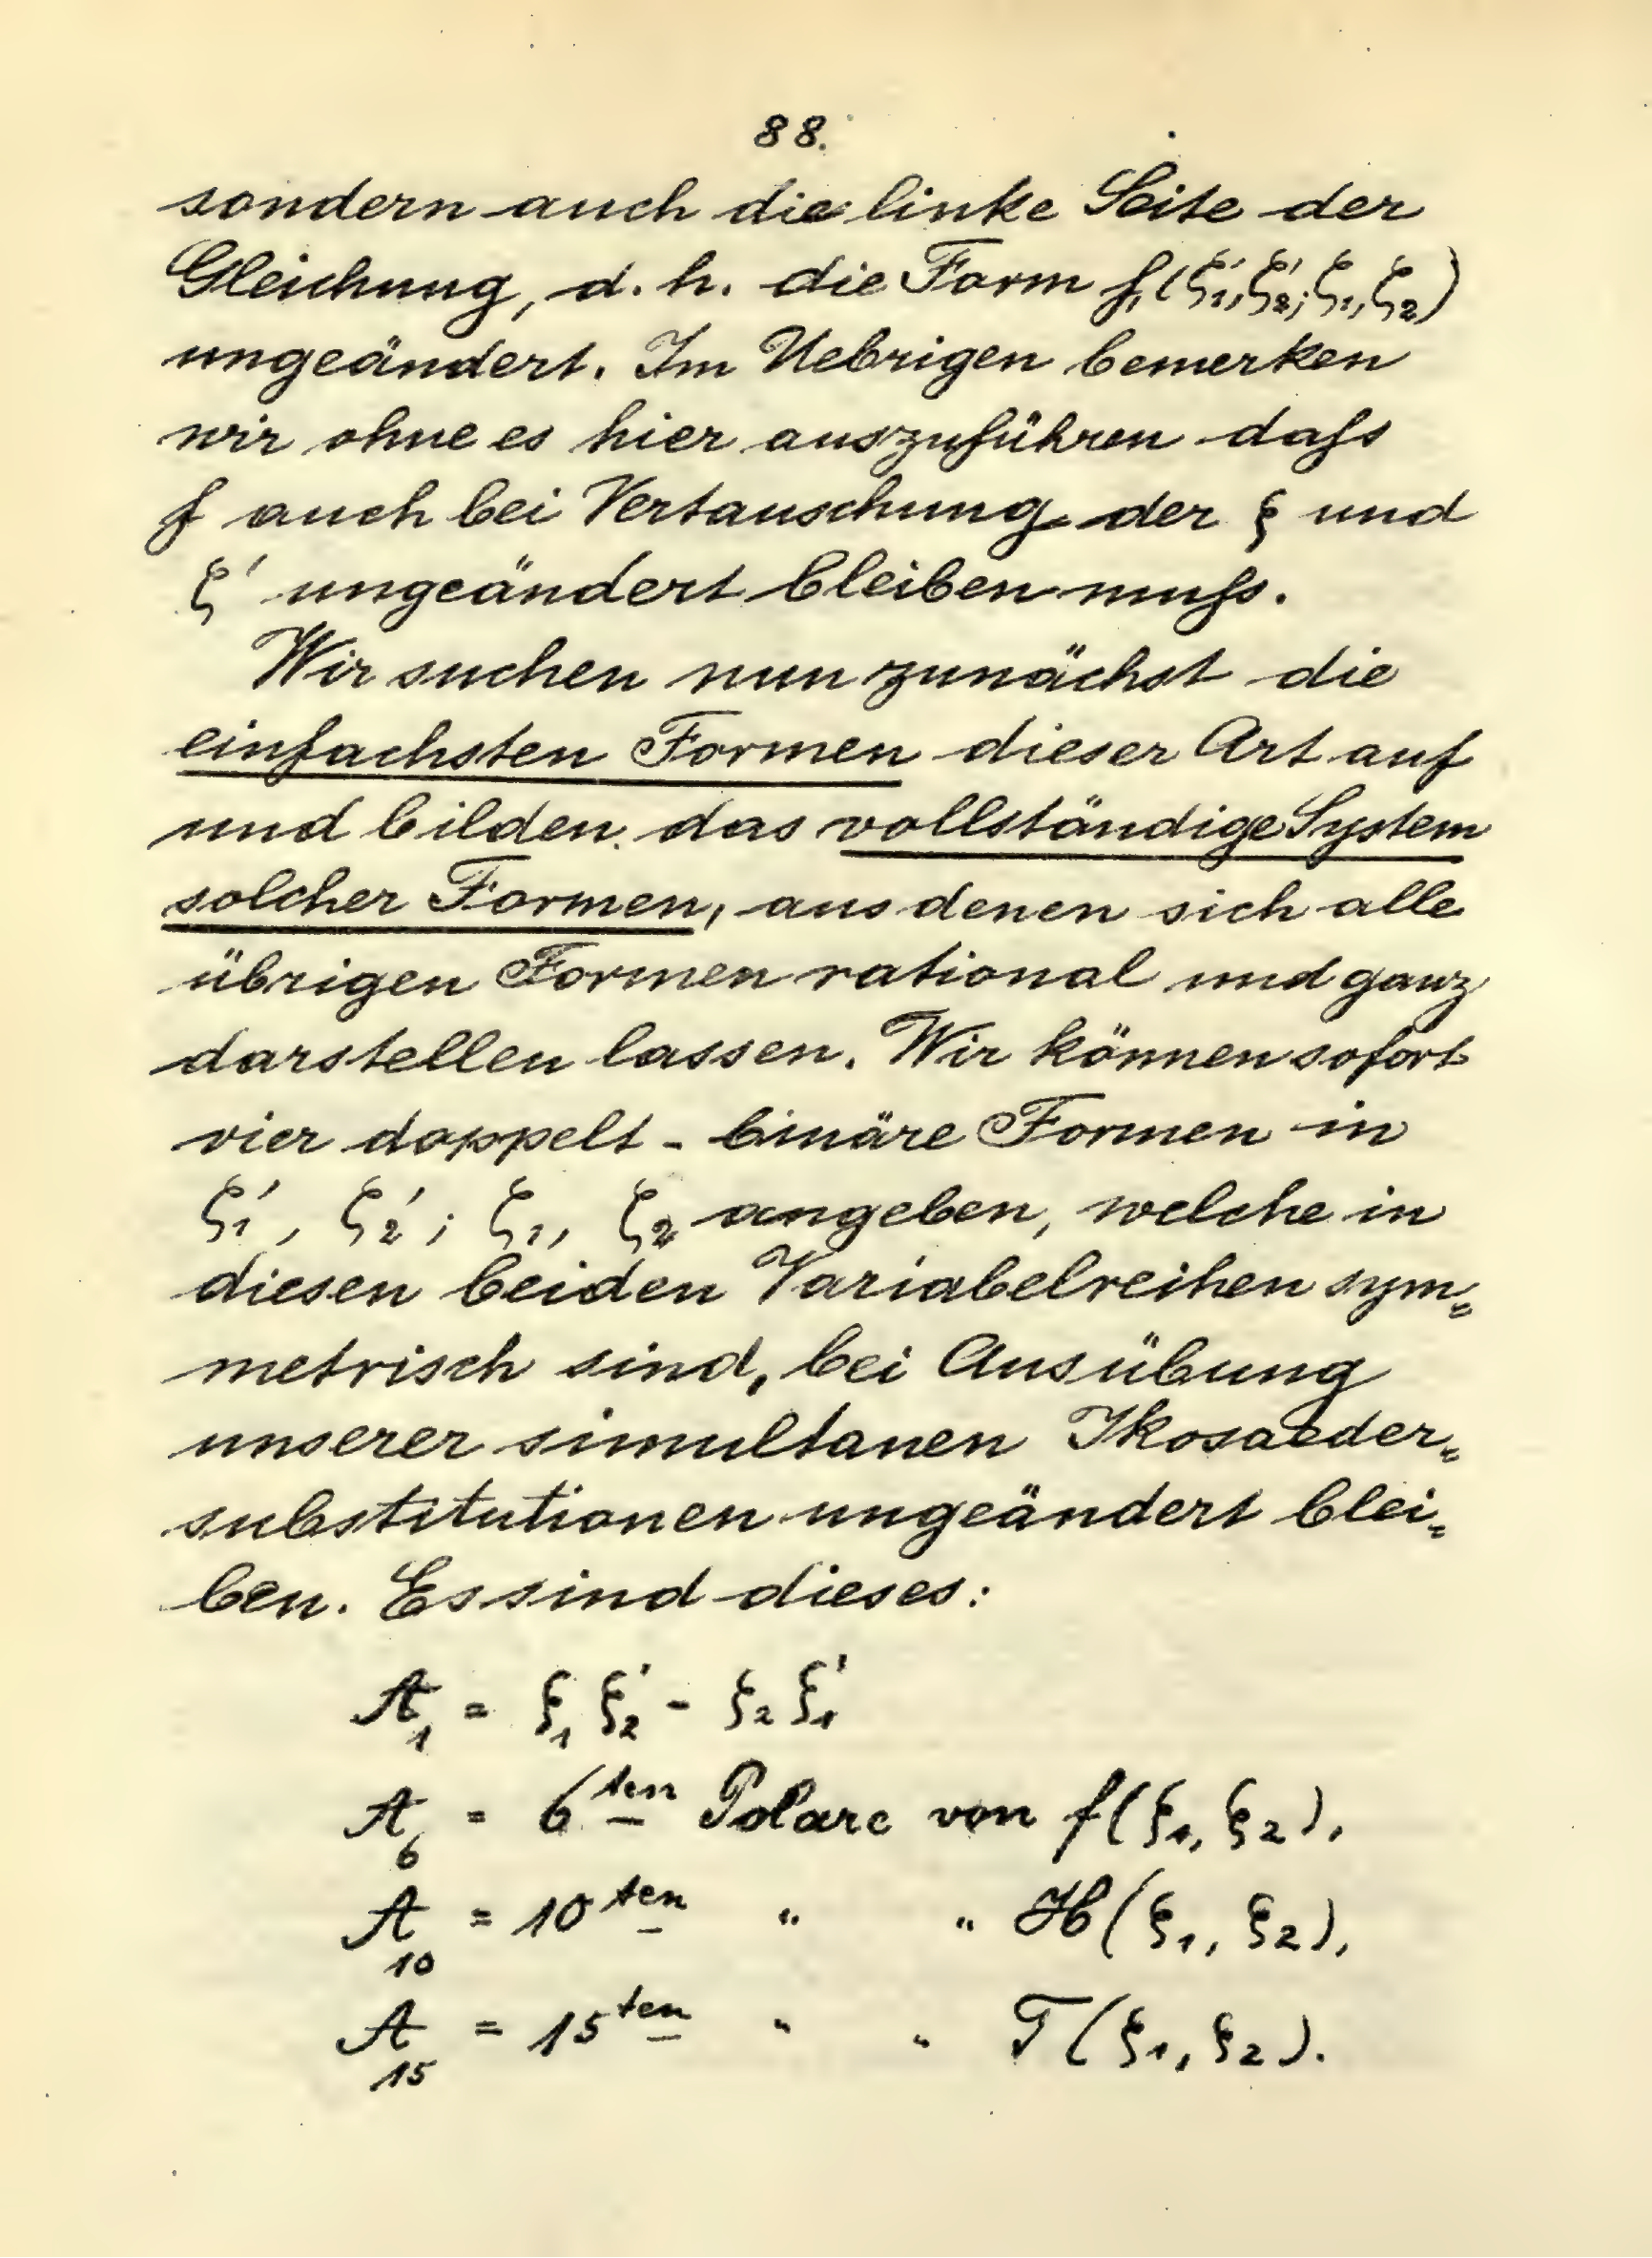 88.
sondern auch die linke Seite der
Gleichung, d. h. die Form f₁(ζ₁', ζ₂'; ζ₁, ζ₂)
ungeändert. Im Uebrigen bemerken
wir ohne es hier auszuführen daſs
f auch bei Vertauschung der ξ und
ξ' ungeändert bleiben muſs.
Wir suchen nun zunächst die
einfachsten Formen dieser Art auf
und bilden das vollständige System
solcher Formen, aus denen sich alle
übrigen Formen rational und ganz
darstellen lassen. Wir können sofort
vier doppelt - binäre Formen in
ζ₁', ζ₂'; ζ₁, ζ₂ angeben, welche in
diesen beiden Variabelreihen sym=
metrisch sind, bei Ausübung
unserer simultanen Ikosaeder=
substitutionen ungeändert blei=
ben. Es sind dieses:
A₁ = ξ₁ ξ₂' - ξ₂ ξ₁'
A₆ = 6ten Polare von f(ξ₁, ξ₂),
A₁₀ = 10ten " " H(ξ₁, ξ₂),
A₁₅ = 15ten " " T(ξ₁, ξ₂).